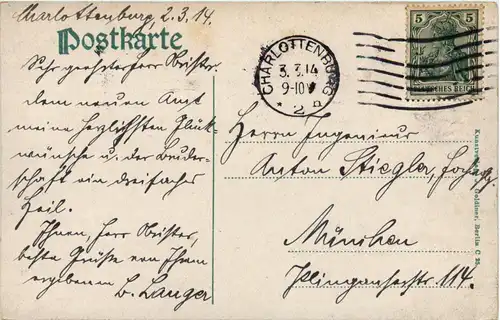 Charlottenburg 2.3.14.
Postkarte
Sehr geehrter Herr
dem neuen Amt
meine herzlichsten Glück-
wünsche u. der Bruder-
schaft ein dreifaches
Heil.
Ihnen, Herr
beste Grüße von Ihrem
ergebenen
Langer
CHARLOTTENBURG
3.3.14
9-10V
* 2 n
5 5
DEUTSCHES REICH
Herrn Ingenieur
Anton Stiegler,
München
114.
Berlin C 25.